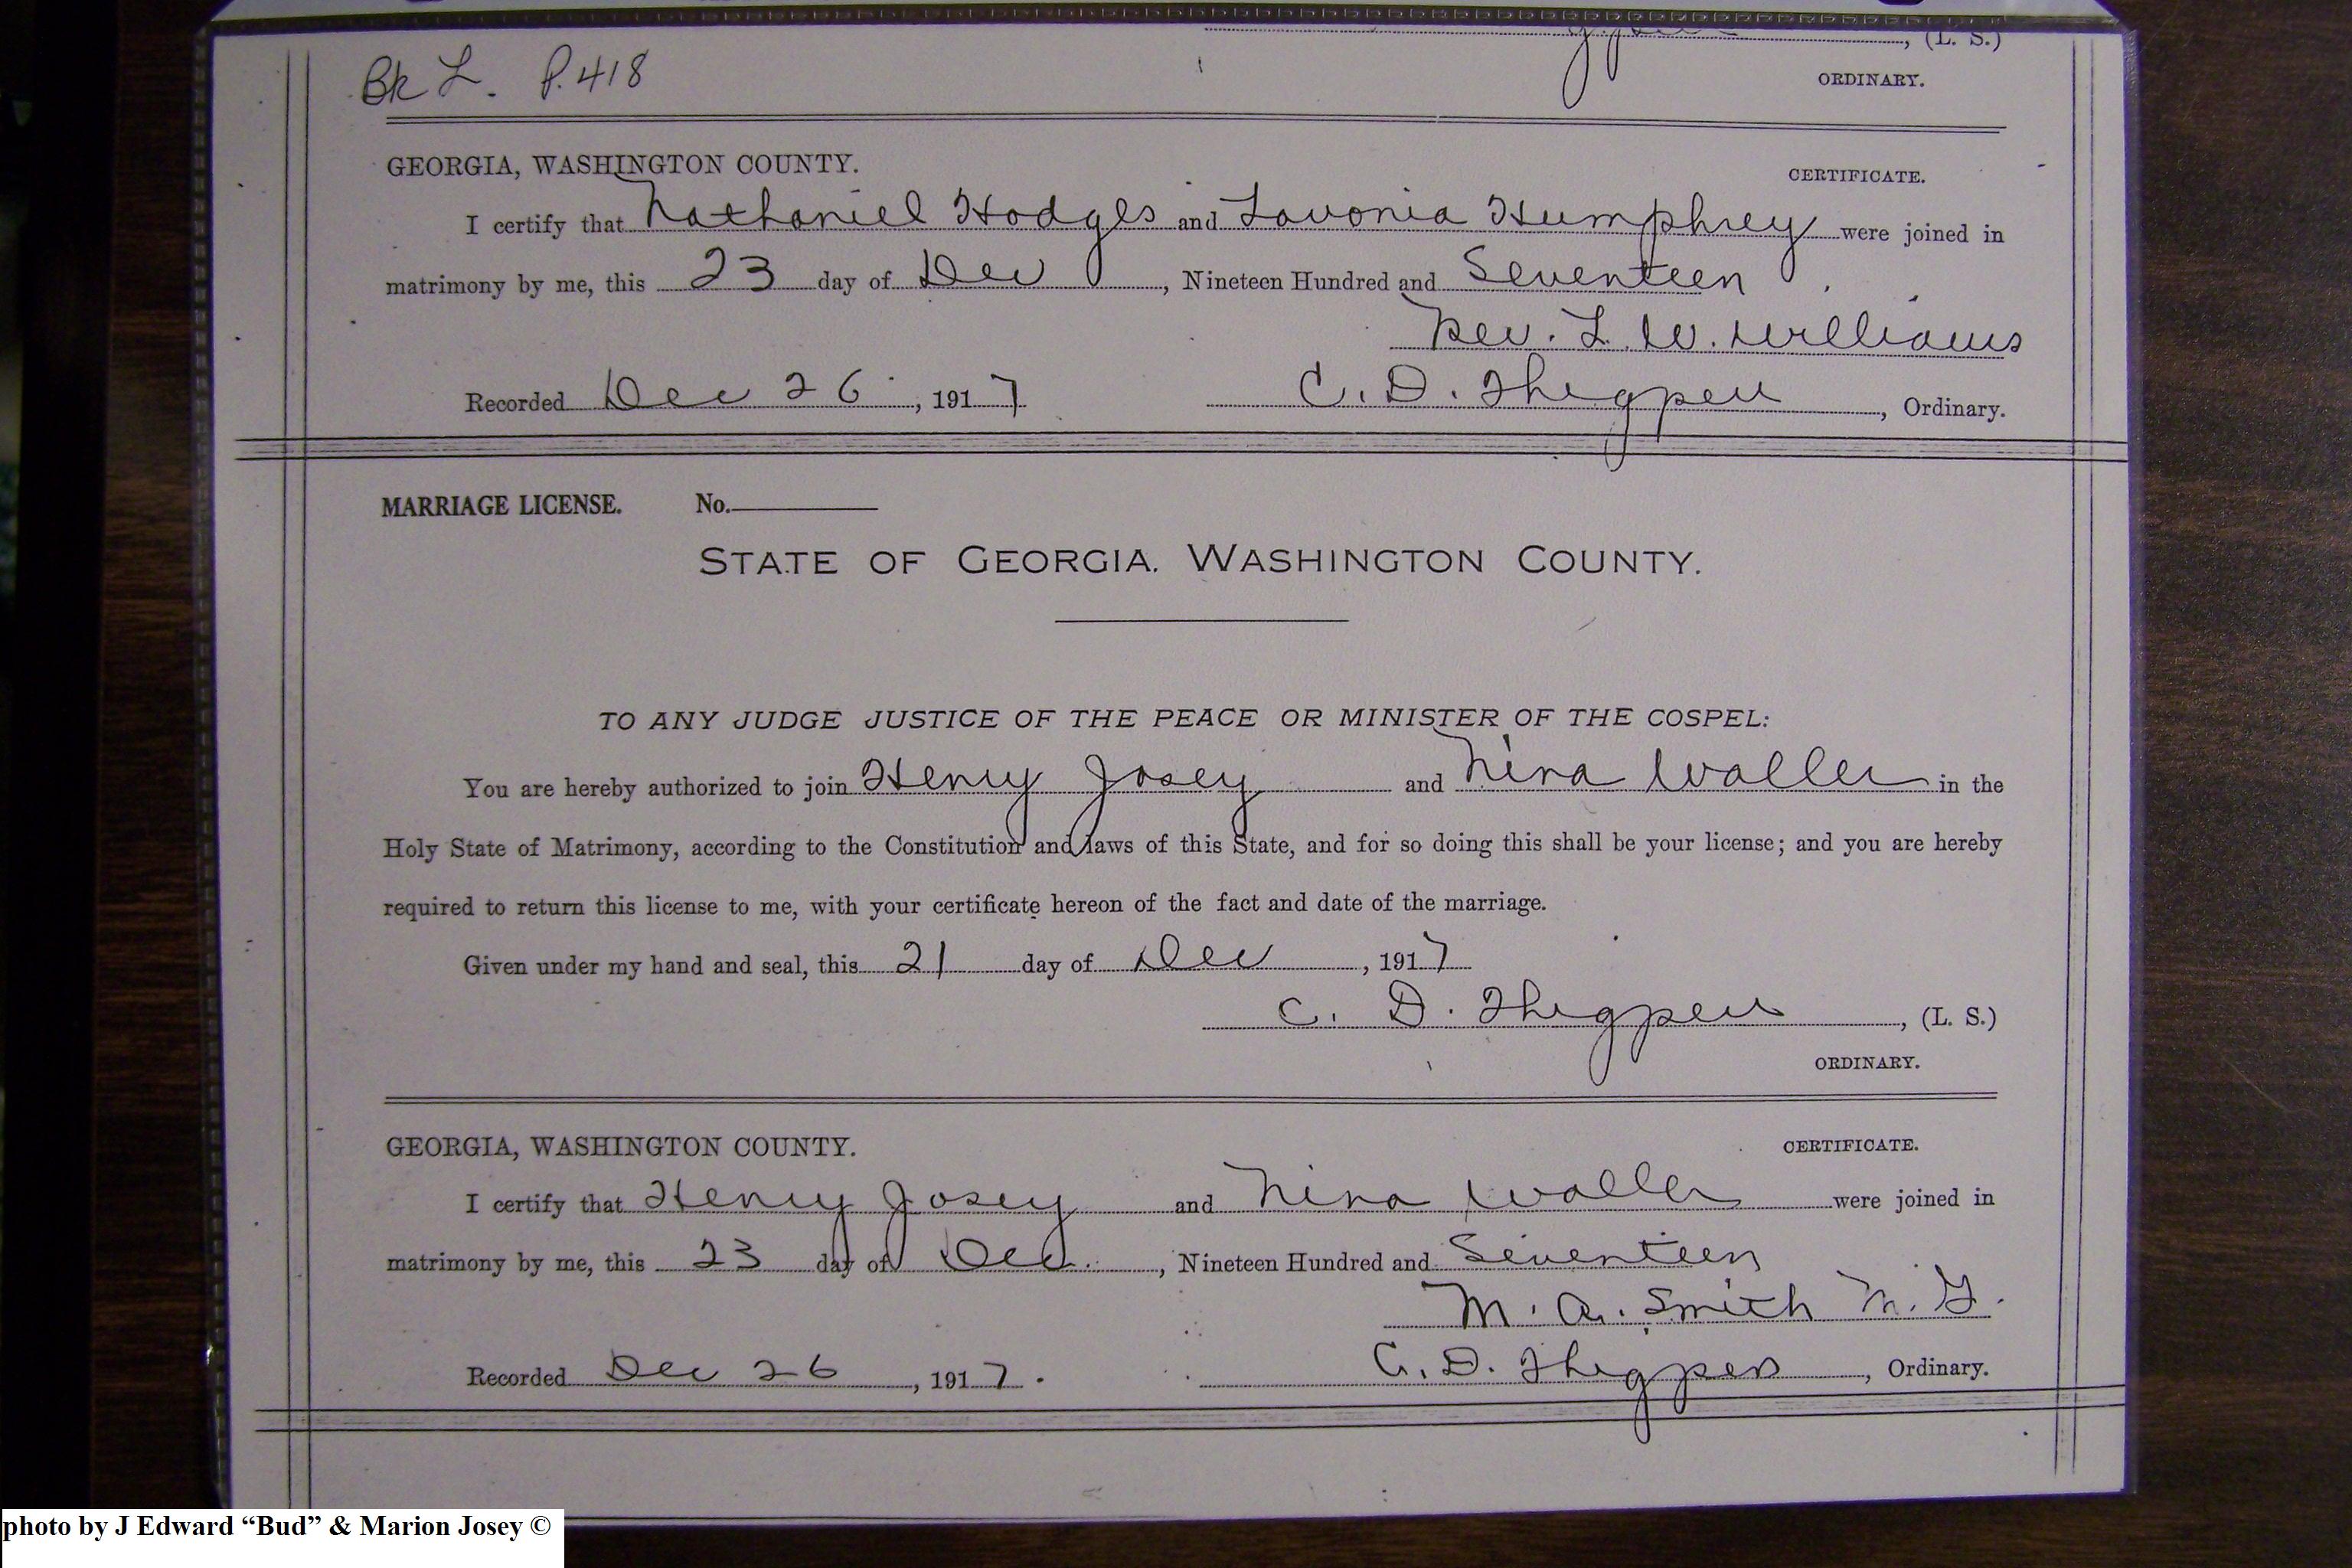 (L. S.)
Bk L. P. 418
ORDINARY.
GEORGIA, WASHINGTON COUNTY.
CERTIFICATE.
I certify that Nathaniel Hodges and Lavonia Humphrey were joined in
matrimony by me, this 23 day of Dec, Nineteen Hundred and Seventeen.
Rev. L. W. Williams
Recorded Dec 26, 1917 C. D. Thigpen, Ordinary.
MARRIAGE LICENSE. No.
STATE OF GEORGIA. WASHINGTON COUNTY.
TO ANY JUDGE JUSTICE OF THE PEACE OR MINISTER OF THE COSPEL:
You are hereby authorized to join Henry Josey and Nina Waller in the
Holy State of Matrimony, according to the Constitution and laws of this State, and for so doing this shall be your license; and you are hereby
required to return this license to me, with your certificate hereon of the fact and date of the marriage.
Given under my hand and seal, this 21 day of Dec, 1917
C. D. Thigpen, (L. S.)
ORDINARY.
GEORGIA, WASHINGTON COUNTY.
CERTIFICATE.
I certify that Henry Josey and Nina Waller were joined in
matrimony by me, this 23 day of Dec., Nineteen Hundred and Seventeen
M. A. Smith M. G.
Recorded Dec 26, 1917. C. D. Thigpen, Ordinary.
photo by J Edward “Bud” & Marion Josey ©